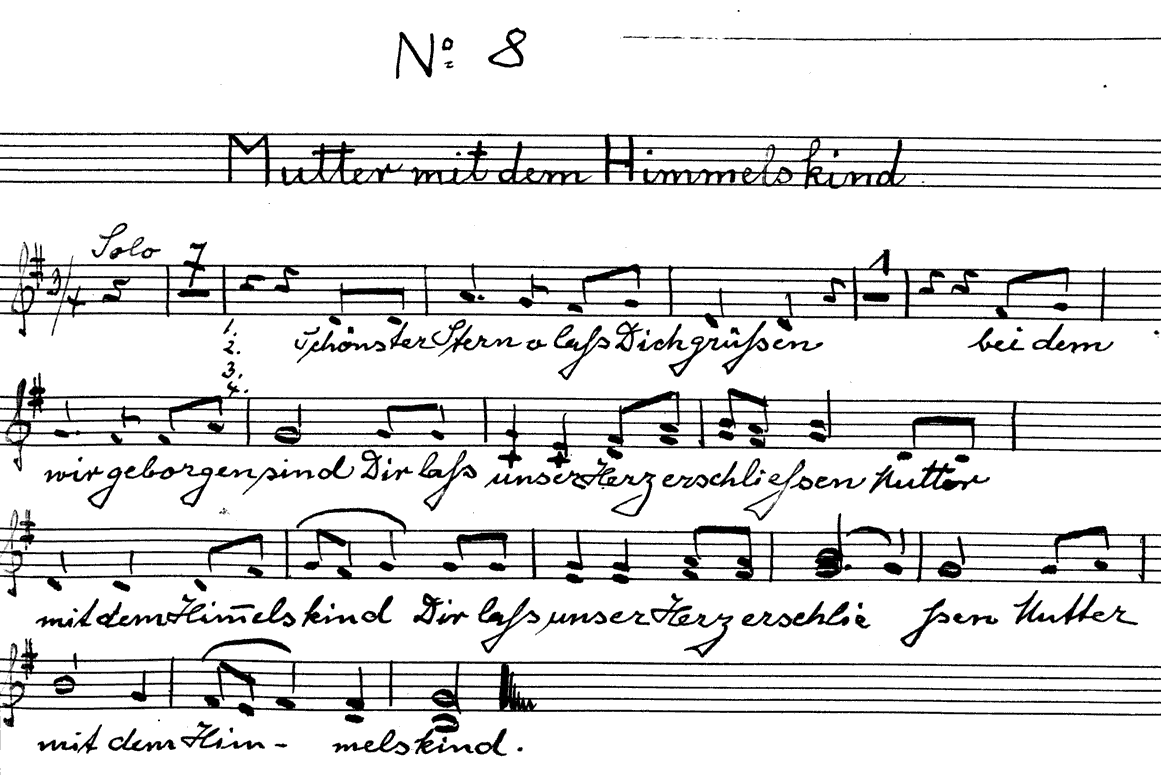 No: 8
Mutter mit dem Himmelskind
Solo 7 1
3/4
1. Schönster Stern o laß Dich grüßen bei dem
2.
3.
4.
wir geborgen sind Dir laß unser Herz erschließen Mutter
mit dem Him̅elskind Dir laß unser Herz erschlie ßen Mutter
mit dem Him- melskind.